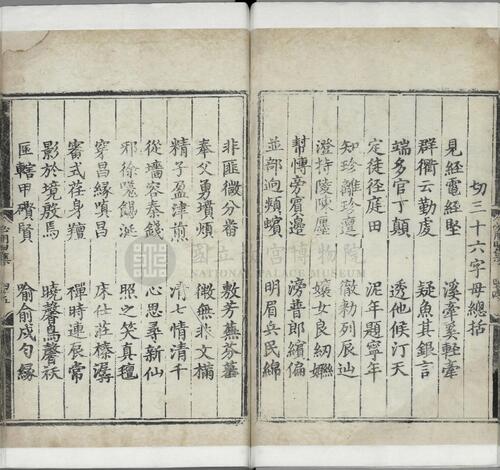 切三十六字母總括
見經電經堅 溪牽奚輕牽
群衢云勤虔 疑魚其銀言
端多官丁顛 透他候汀天
定徒徑庭田 泥年題寧年
知珍離珍邅 徹勑列辰辿
澄持陵陳廛 孃女良紉
幫愽旁賓邊 滂普郎繽偏
並部迥頻蠙 明眉兵民綿
非匪微分番 敷芳蕪芬蕃
奉父勇墳煩 微無非文樠
精子盈津煎 清七情清千
從墻容秦錢 心思尋新仙
邪徐嗟 照之笑真氊
穿昌緣嗔 床仕莊榛潺
審式荏身羶 禪時連辰常
影於境殷焉 曉馨鳥馨祆
匣轄甲礥賢 喻俞戍勻緣
國立故宮博物院
NATIONAL PALACE MUSEUM